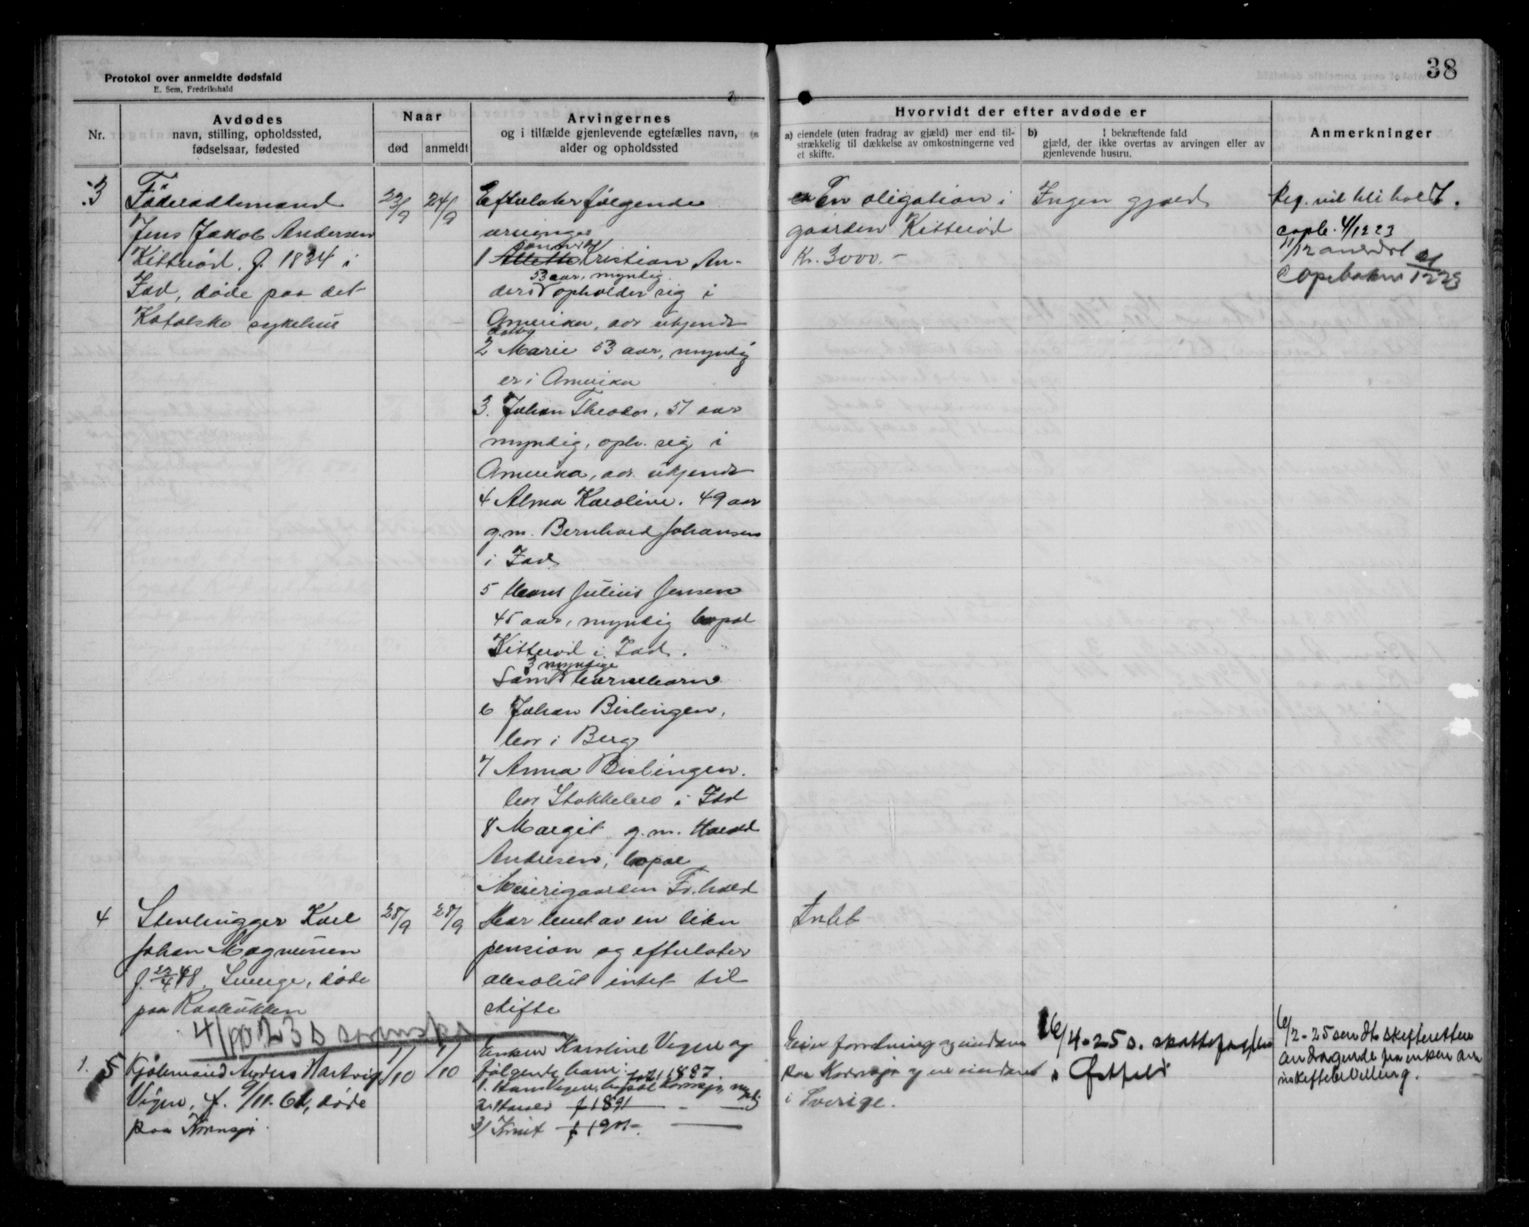 38
Protokol over anmeldte dødsfald
E. Sem, Fredrikshald
Nr.
Avdødes
navn, stilling, opholdssted,
fødselsaar, fødested
Naar
død
anmeldt
Arvingernes
og i tilfælde gjenlevende egtefælles navn,
alder og opholdssted
Hvorvidt der efter avdøde er
a) eiendele (uten fradrag av gjæld) mer end til-
strækkelig til dækkelse av omkostningerne ved
et skifte.
b) I bekræftende fald
gjæld, der ikke overtas av arvingen eller av
gjenlevende hustru.
Anmerkninger
3
Føderaadsmand
Jens Jakob Andersen
Kitterød, f. 1834 i
Idd, døde paa det
Katolske sykehus
22/9
24/9
Efterlater følgende
arvinger
1 Kristian An-
53 aar, myndig.
opholder sig i
Amerika, adr ukjendt
2 Marie 53 aar, myndig
er i Amerika
3. Johan Theodor, 51 aar
myndig, oph. sig i
Amerika, adr. ukjendt
4 Alma Karoline. 49 aar
g.m. Bernhard Johansen
i Idd
5 Hans Julius Jensen
45 aar, myndig bopæl
Kitterød i Idd.
3 myndige
Samt barnebarn
6 Johan Bislingen,
bor i Berg
7 Anna Bislingen.
bor Stokkebro i Idd
8 Margit g.m. Harald
Andresen, bopæl
Meierigaarden Fr.hald
En obligation i
gaarden Kitterød
Kr. 3000.-
Ingen gjæld
Beg. vil bli holdt.
4/12 23
11/12
4
Stenhugger Karl
Johan Magnussen
f. 48. Sverige, døde
paa Rasbækken
28/9
28/9
Har levet av en liten
pension og efterlater
absolut intet til
skifte
Intet
4/10 23
5
Anders Hartvig
Vigen, f. 9/11.62, døde
paa Kornsjø
1/10
1/10
Enken Karoline Vigen og
følgende barn:
1. Hans Vigen, bopæl Kornsjø, myndig
2. Harald f 1891
3/ Knut f 19
Eier forretning og eiendom
paa Kornsjø og en eiendom
i Sverige.
16/4-25 s. skattefogden
i Østfold
6/2-25 sendt skifteretten
andragende fra enken om
uskiftebevilling.